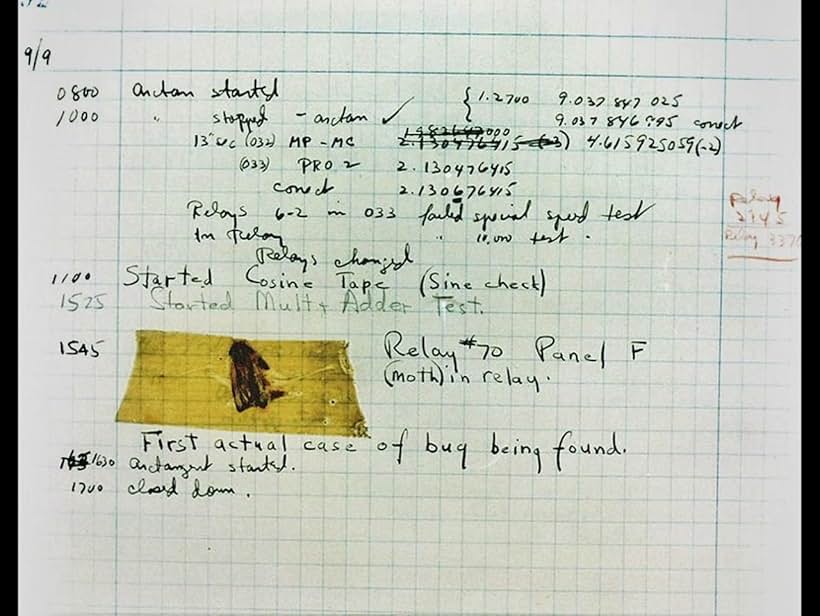 9/9
0800 arctan started { 1.2700 9.037 847 025
1000 " stopped - arctan ✓ 9.037 846 995 conect
13"uc (032) MP - MC 2.130476415 (-3) 4.615925059(-2)
(033) PRO 2 2.130476415
conect 2.130676415
Relays 6-2 in 033 failed special speed test
In Relay " 10,000 test .
Relay
2145
Relay 3370
Relays changed
1100 Started Cosine Tape (Sine check)
1525 Started Mult+ Adder Test.
1545 Relay #70 Panel F
(moth) in relay.
First actual case of bug being found.
1630 arctangent started.
1700 closed down .